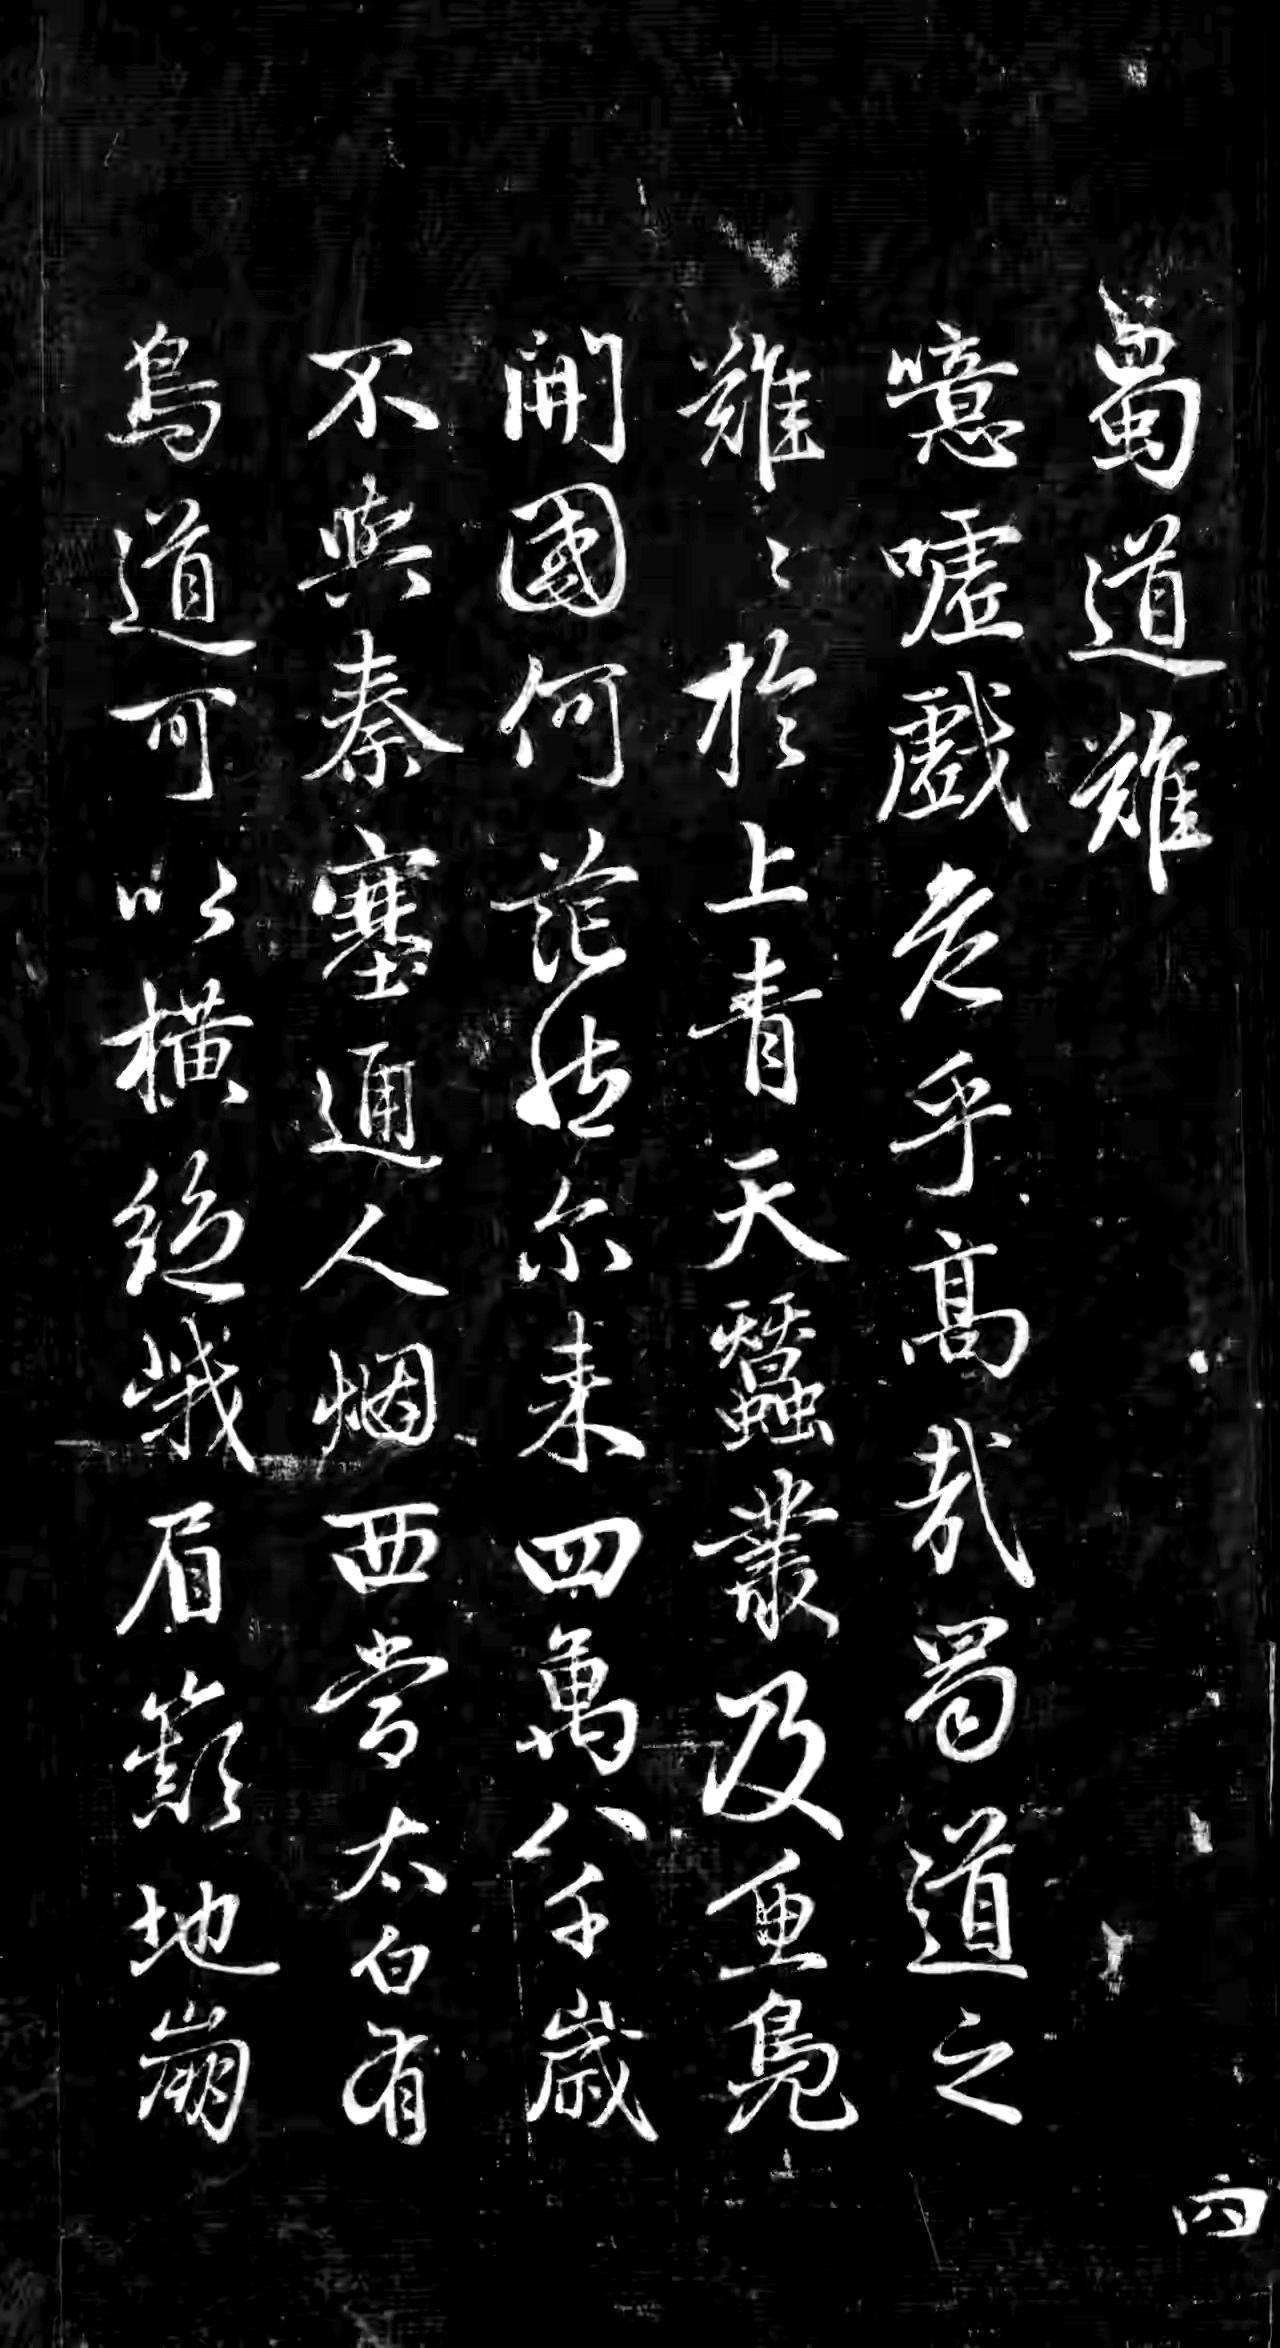 蜀道難
噫嘘戲危乎高哉蜀道之
難〻於上青天蠶叢及魚鳧
開國何茫然尔来四萬八千歲
不與秦塞通人烟西當太白有
鳥道可以橫絕峩眉巔地崩
四